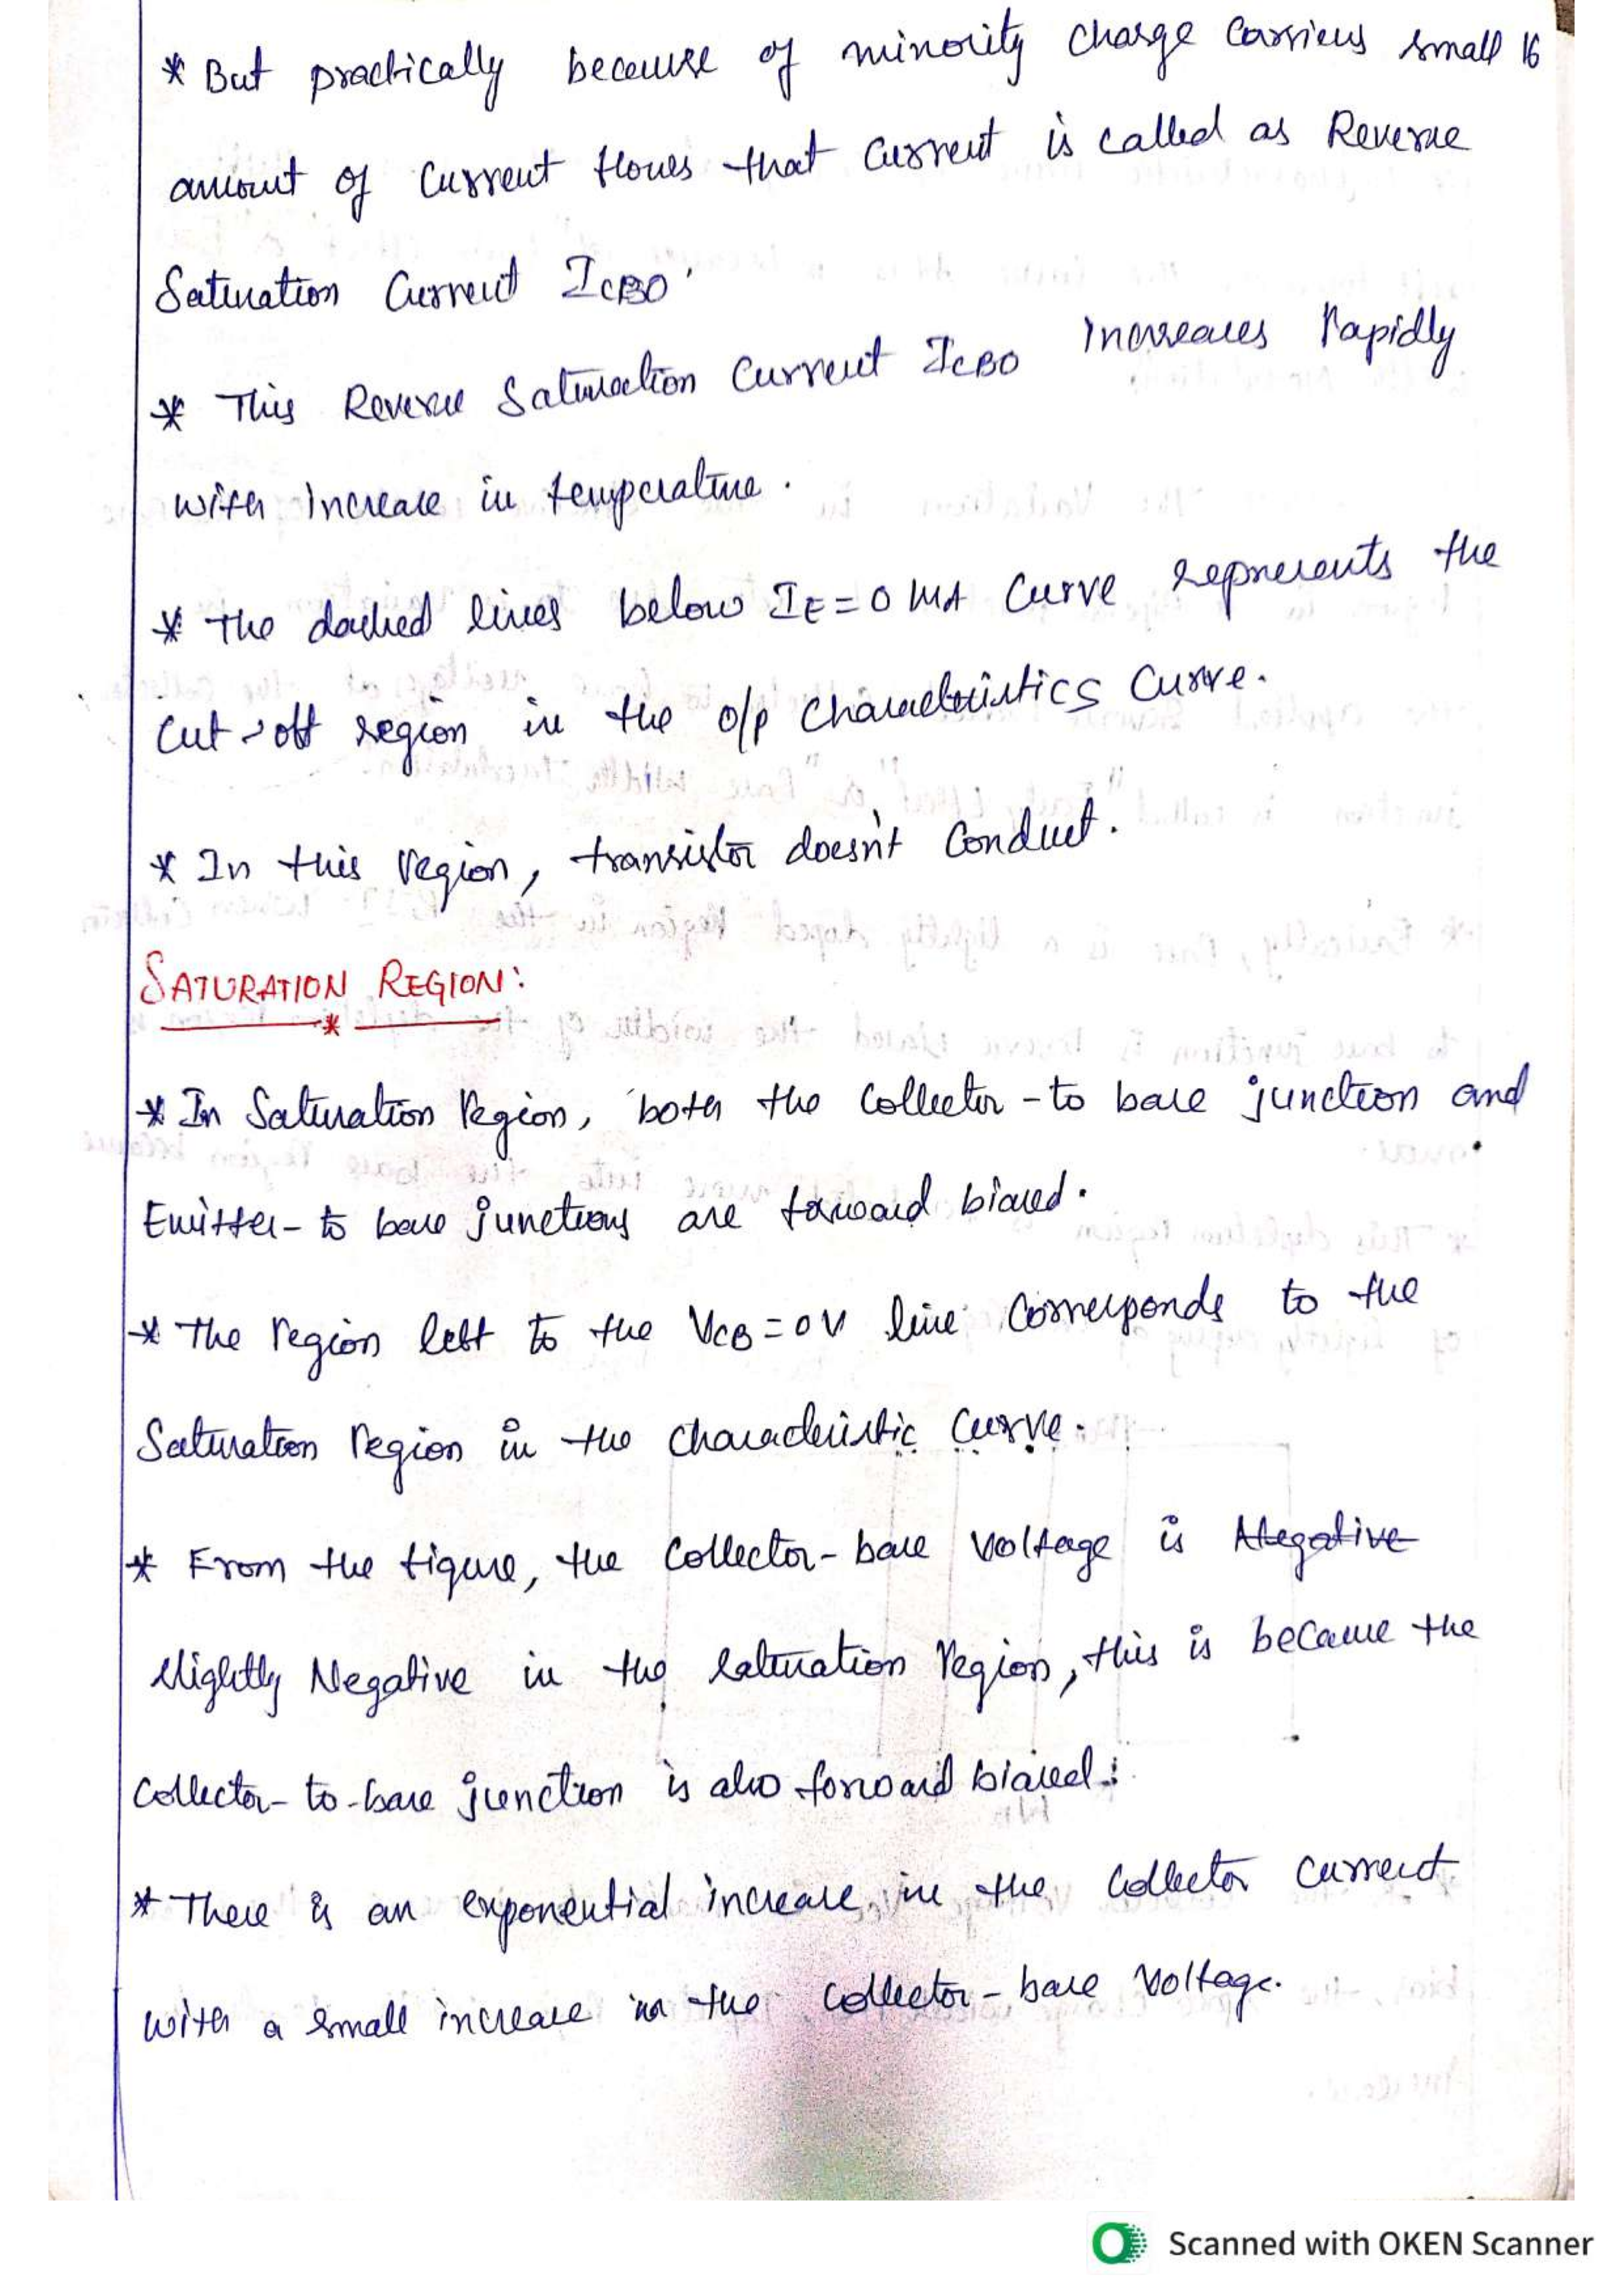 * But practically because of minority charge carriers small 16
amount of current flows that current is called as Reverse
Saturation Current ICBO.
* This Reverse Saturation Current ICBO Increases rapidly
with increase in temperature.
* The dashed lines below IE = 0 mA curve represents the
cut-off region in the o/p characteristics curve.
* In this region, transistor doesn't conduct.
SATURATION REGION:
*
* In Saturation region, both the collector-to base junction and
Emitter-to base junctions are forward biased.
* The region left to the VCB = 0V line corresponds to the
Saturation region in the characteristic curve.
* From the figure, the collector-base voltage is Negative
slightly Negative in the saturation region, this is because the
collector-to-base junction is also forward biased.
* There is an exponential increase in the collector current
with a small increase in the collector-base voltage.
Scanned with OKEN Scanner